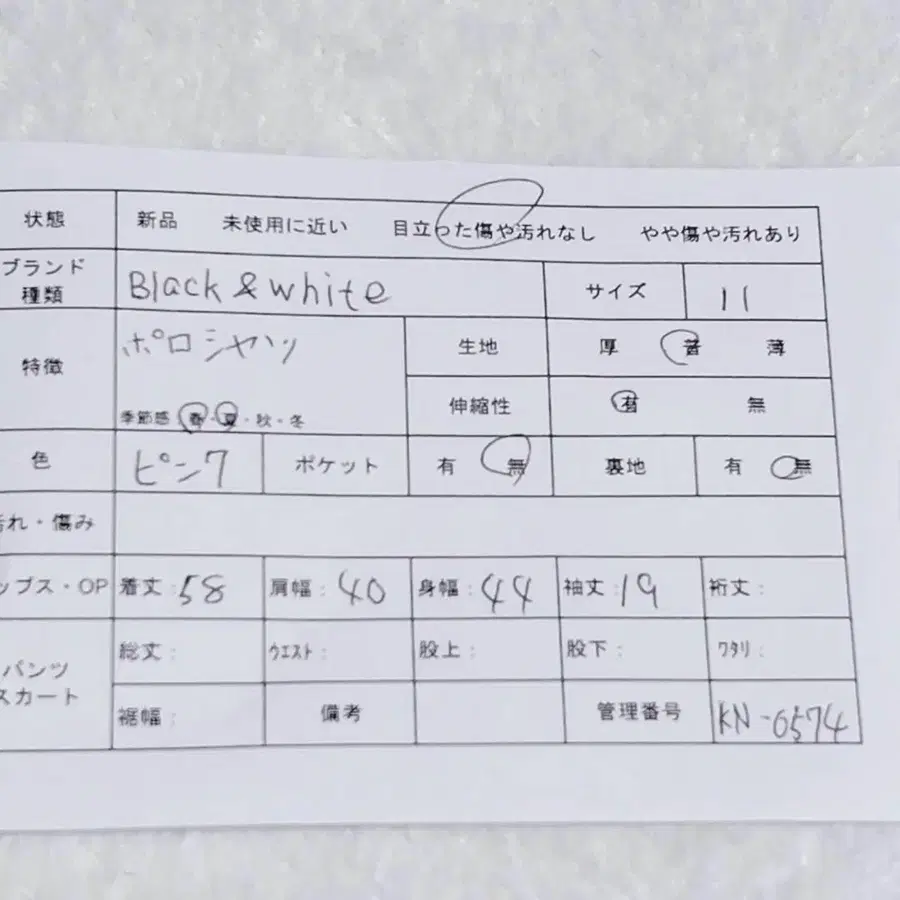 状態 新品 未使用に近い 目立った傷や汚れなし やや傷や汚れあり
ブランド
種類 Black & white サイズ 11
特徴 ポロシャツ 生地 厚 普 薄
季節感 春・夏・秋・冬 伸縮性 有 無
色 ピンク ポケット 有 無 裏地 有 無
汚れ・傷み
ップス・OP 着丈:58 肩幅:40 身幅:44 袖丈:19 裄丈:
パンツ
スカート 総丈: ウエスト: 股上: 股下: ワタリ:
裾幅: 備考 管理番号 KN-6574